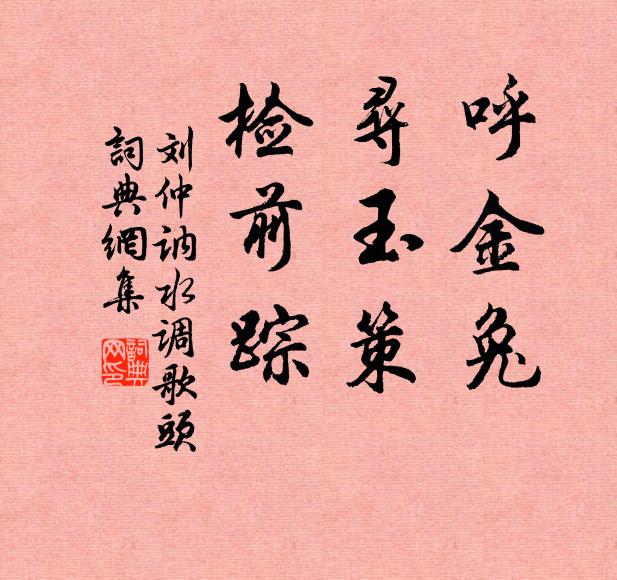 呼金兔
尋玉策
检前踪
刘仲讷水调歌頭
詞典網集
詞典网印